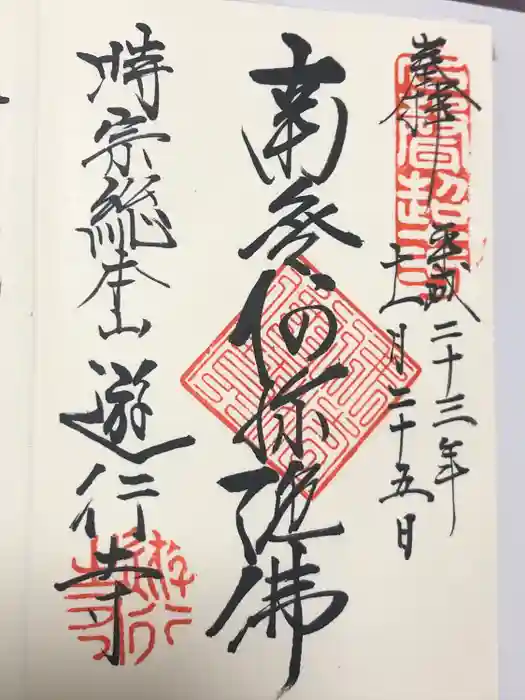 奉拝
平成二十三年
十一月二十五日
南無阿弥陀佛
時宗総本山 遊行寺